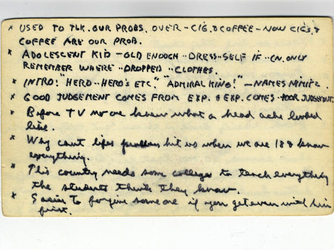 * USED TO TLK. OUR PROBS. OVER - CIG. & COFFEE - NOW CIGS &
COFFEE ARE OUR PROB.
* ADOLESCENT KID - OLD ENOUGH - DRESS - SELF IF - CN. ONLY
REMEMBER WHERE - DROPPED - CLOTHES.
* INTRO: "HERO - HERO'S ETC. "ADMIRAL KING!" - NAMES NIMITZ.
* GOOD JUDGEMENT COMES FROM EXP. & EXP. COMES - POOR JUDGEMENT
* Before TV no one knew what a head ache looked
like.
* Why cant lifes problems hit us when we are 18 & know
everything.
* This country needs some colleges to teach everything
the students think they know.
* Easier to forgive someone if you get even with him
first.